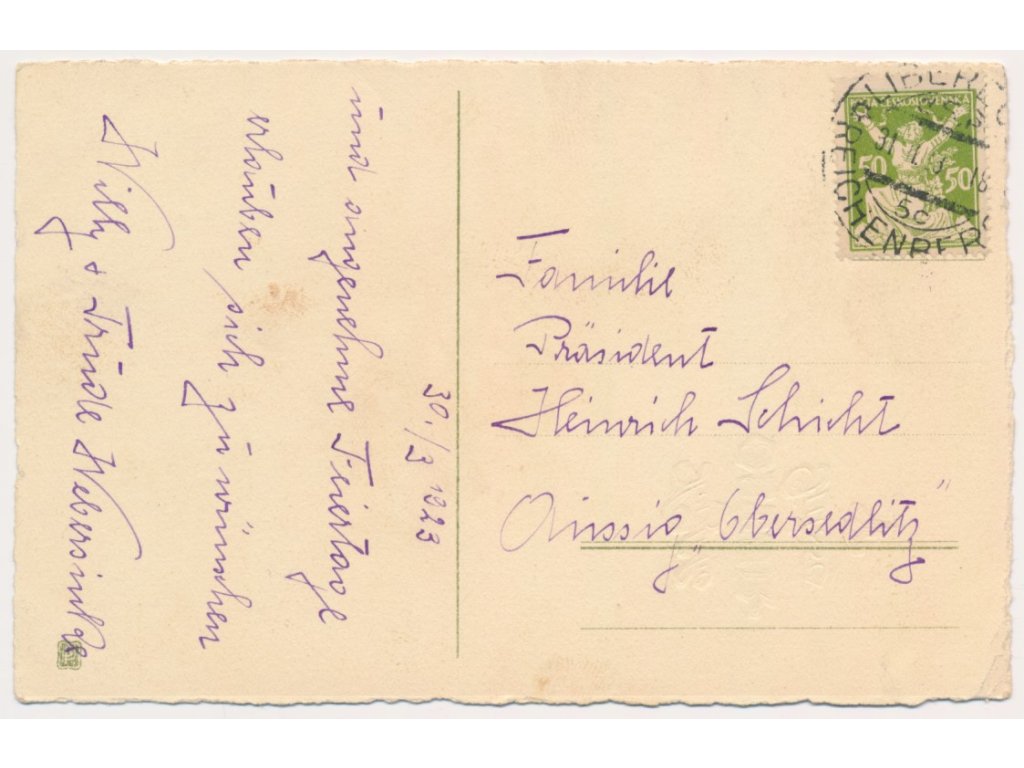 30./3 1923
und angenehme Feiertage
erlauben sich zu wünschen
Willy & Trude Webersinke
Familie
Präsident
Heinrich Schicht
Aussig „Obersedlitz"
LIBEREC
REICHENBERG
31
5c
ČESKOSLOVENSKÁ
50 50